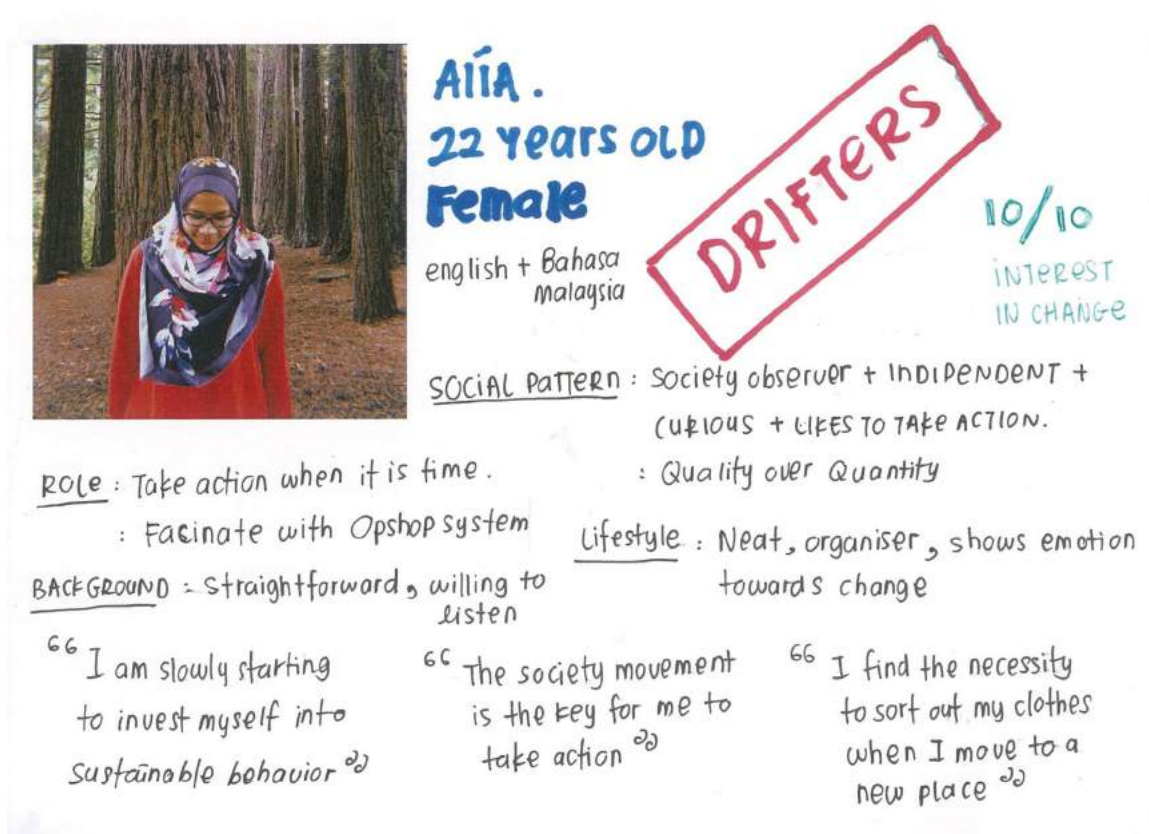 AlíA.
22 Years OLD
Female
english + Bahasa
Malaysia
DRIFTERS
10/10
INTEREST
IN CHANGE
SOCIAL PATTERN : Society observer + INDIPENDENT +
CURIOUS + LIKES TO TAKE ACTION.
: Quality over Quantity
ROLE : Take action when it is time.
: Facinate with Opshop system
Lifestyle : Neat, organiser, shows emotion
towards change
BACKGROUND : Straightforward, willing to
listen
“ I am slowly starting
to invest myself into
sustainable behavior ”
“ The society movement
is the key for me to
take action ”
“ I find the necessity
to sort out my clothes
when I move to a
new place ”